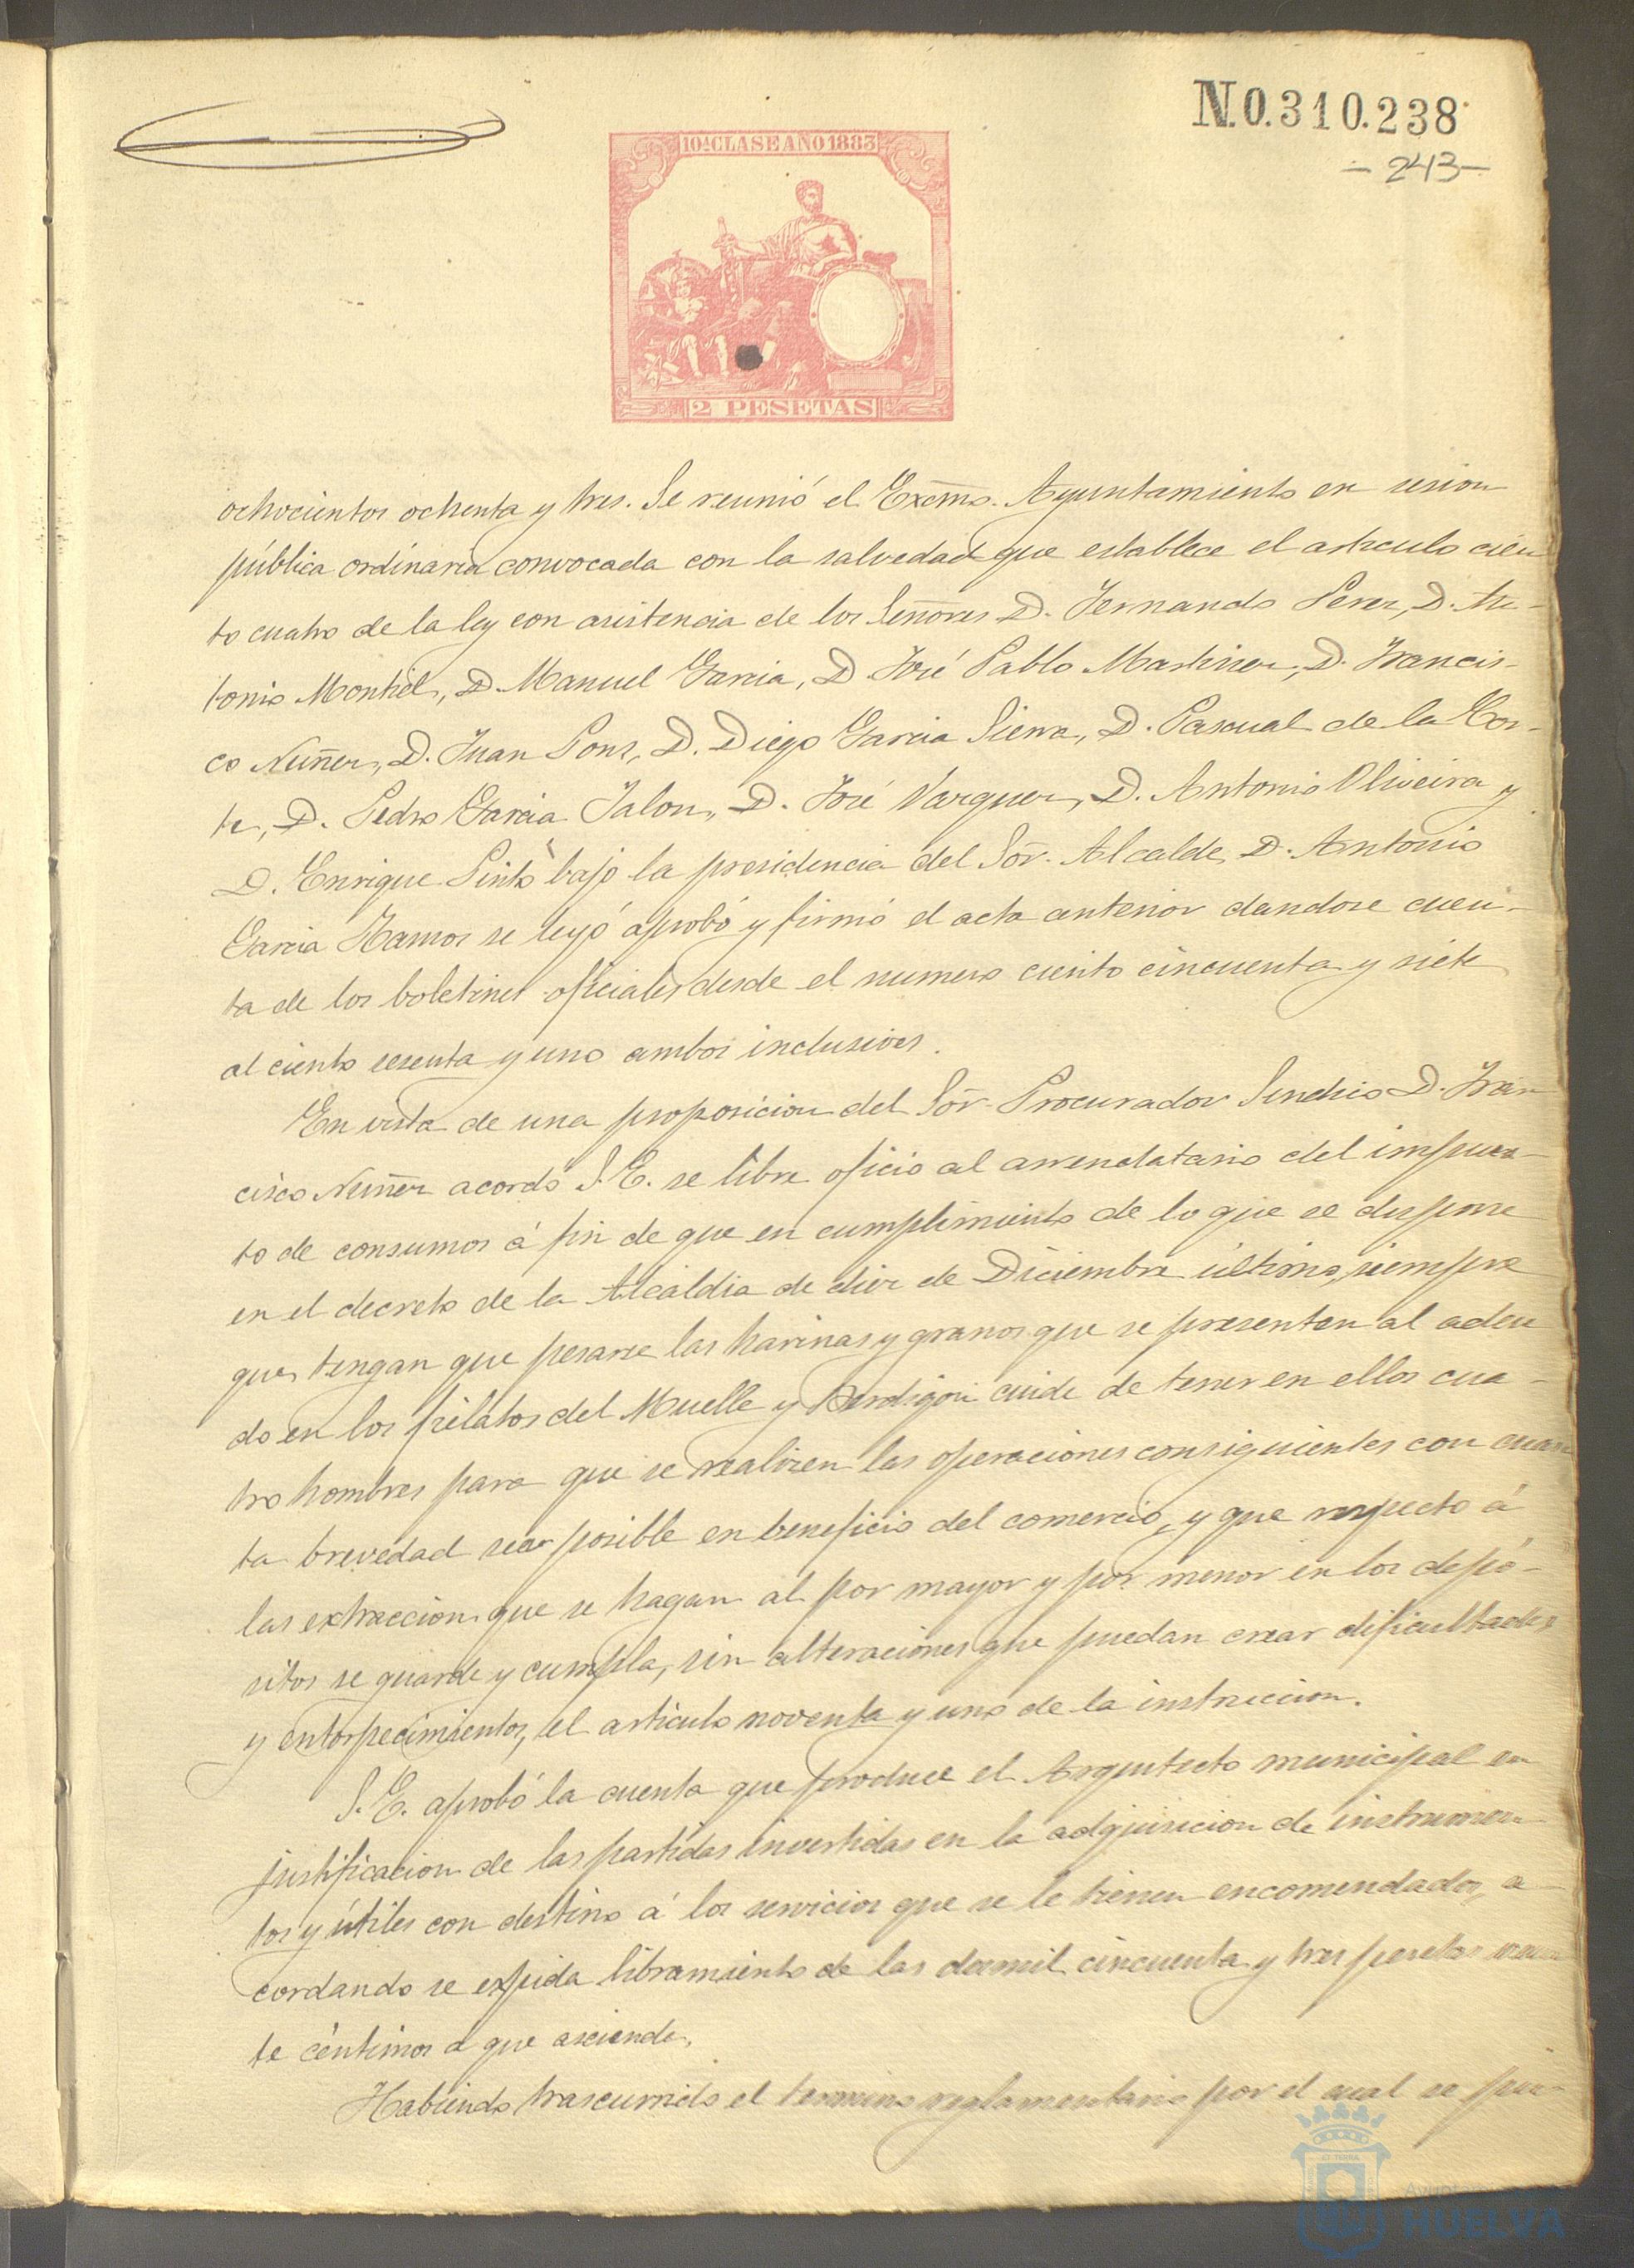 N.0.310.238
- 243 -
10ª CLASE AÑO 1883
2 PESETAS
ochocientos ochenta y tres. Se reunió el Excmo. Ayuntamiento en sesion
pública ordinaria convocada con la salvedad que establece el articulo cien
to cuatro de la ley con asistencia de los Señores D. Fernando Perez, D. An-
tonio Montiel, D. Manuel Garcia, D. José Pablo Martinez, D. Francis-
co Nuñez, D. Juan Pons, D. Diego Garcia Sierra, D. Pascual de la Cor-
te, D. Pedro Garcia Jalon, D. José Vazquez, D. Antonio Oliveira y
D. Enrique Pinto bajo la presidencia del Sor. Alcalde, D. Antonio
Garcia Ramos se leyó aprobó y firmó el acta anterior dandose cuen-
ta de los boletines oficiales desde el numero ciento cincuenta y siete
al ciento sesenta y uno ambos inclusives.
En vista de una proposicion del Sor. Procurador Sindico D. Fran
cisco Nuñez acordó S.E. se libre oficio al arrendatario del impues-
to de consumos á fin de que en cumplimiento de lo que se dispone
en el decreto de la Alcaldia de diez de Diciembre último, siempre
que tengan que pesarse las harinas y granos que se presenten al adeu
do en los fielatos del Muelle y Perdigon cuide de tener en ellos cua-
tro hombres para que se realizen las operaciones consiguientes con cuan
ta brevedad sea posible en beneficio del comercio, y que respecto á
las extraccion que se hagan al por mayor y por menor en los depó-
sitos se guarde y cumpla, sin alteraciones que puedan crear dificultades
y entorpecimientos, el articulo noventa y uno de la instruccion.
S.E. aprobó la cuenta que produce el Arquitecto municipal en
justificacion de las partidas invertidas en la adquisicion de instrumen
tos y útiles con destino á los servicios que se le tienen encomendados, a-
cordando se expida libramiento de las dosmil cincuenta y tres pesetas
te céntimos á que asciende.
Habiendo trascurrido el termino reglamentario por el cual se
HUELVA